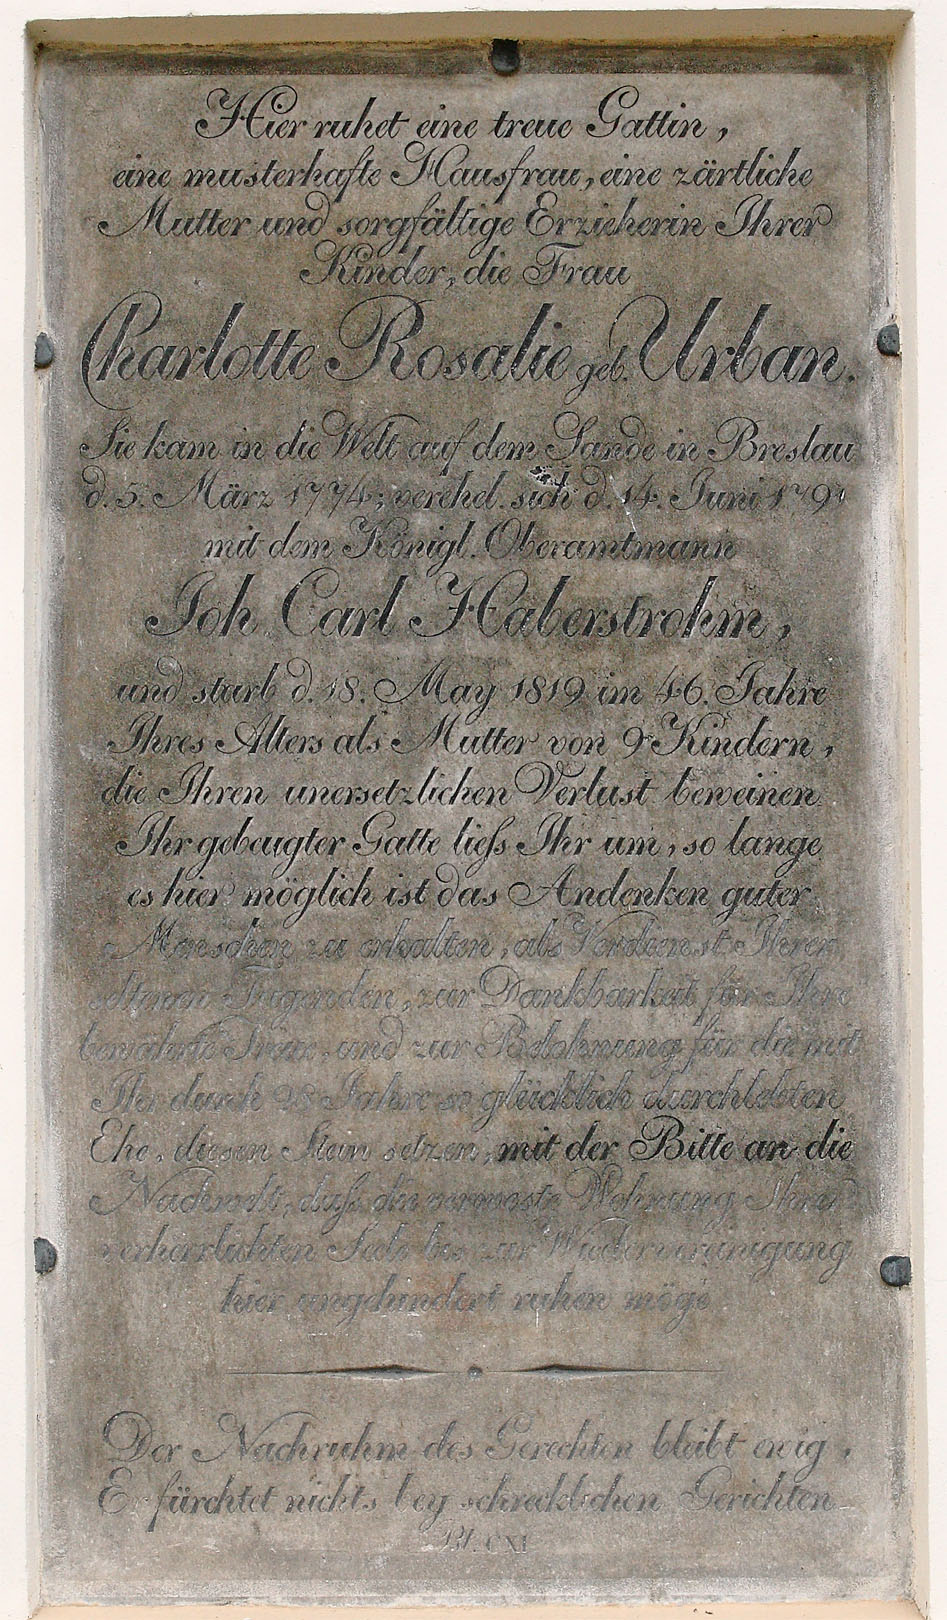 Hier ruhet eine treue Gattin,
eine musterhafte Hausfrau, eine zärtliche
Mutter und sorgfältige Erzieherin Ihrer
Kinder, die Frau
Charlotte Rosalie geb. Urban.
Sie kam in die Welt auf dem Sande in Breslau
d. 5. März 1774; verehel. sich d. 14. Juni 1791
mit dem Königl. Oberamtmann
Joh. Carl Haberstrohm,
und starb d. 18. May 1819 im 46. Jahre
Ihres Alters als Mutter von 9 Kindern,
die Ihren unersetzlichen Verlust beweinen.
Ihr gebeugter Gatte liess Ihr um, so lange
es hier möglich ist das Andenken guter
Menschen zu erhalten, als Verdienst Ihrer
seltenen Tugenden, zur Dankbarkeit für Ihre
bewährte Treue, und zur Belohnung für die mit
Ihr durch 28 Jahre so glücklich durchlebten
Ehe, diesen Stein setzen, mit der Bitte an die
Nachwelt, dass die verwaiste Wohnung Ihrer
verherrlichten Seele bis zur Wiedervereinigung
hier ungehindert ruhen möge
Der Nachruhm des Gerechten bleibt ewig,
Er fürchtet nichts bey schrecklichen Gerichten
Pf. CXI